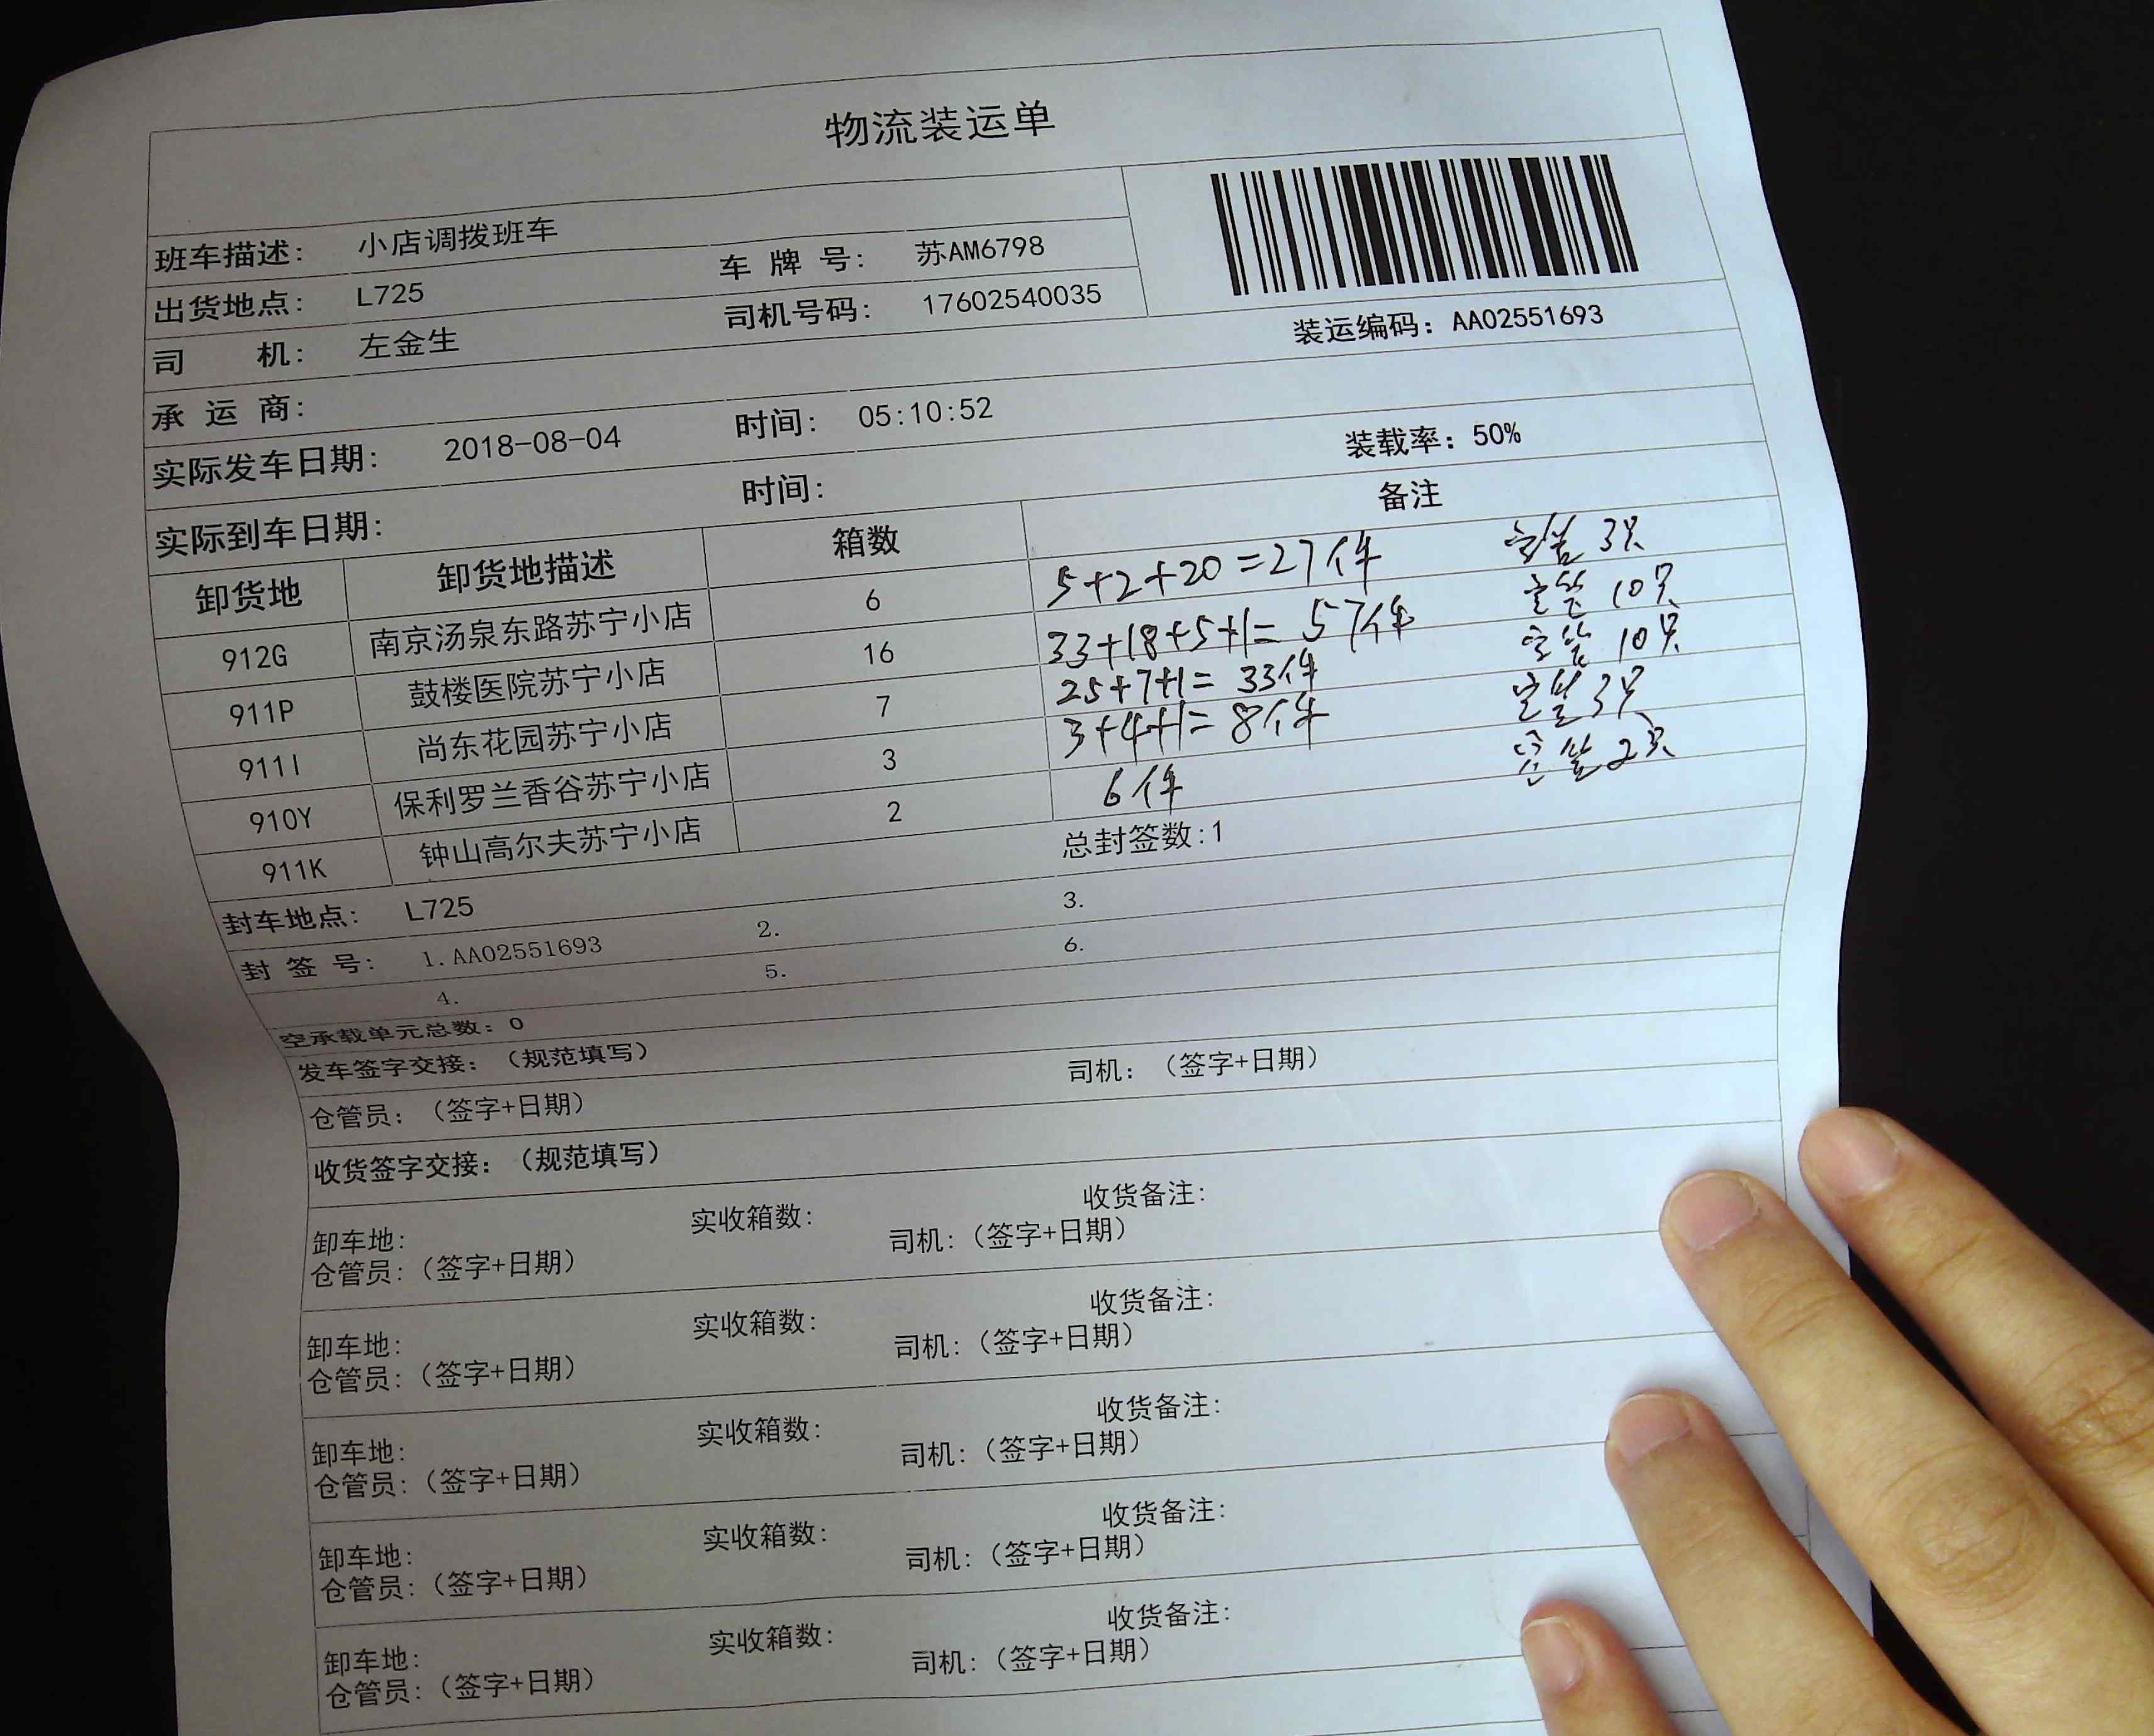 物流装运单
班车描述： 小店调拨班车
出货地点： L725 车 牌 号： 苏AM6798
司 机： 左金生 司机号码： 17602540035
装运编码：AA02551693
承 运 商：
实际发车日期： 2018-08-04 时间： 05:10:52
装载率：50%
实际到车日期： 时间：
卸货地 卸货地描述 箱数 备注
912G 南京汤泉东路苏宁小店 6 5+2+20=27件 3只
911P 鼓楼医院苏宁小店 16 33+18+5+1=57件 10只
911I 尚东花园苏宁小店 7 25+7+1=33件 10只
910Y 保利罗兰香谷苏宁小店 3 3+4+1=8件 3只
911K 钟山高尔夫苏宁小店 2 6件 2只
封车地点： L725 总封签数:1
封 签 号： 1.AA02551693 2. 3.
4. 5. 6.
空承载单元总数：0
发车签字交接：（规范填写）
仓管员：（签字+日期） 司机：（签字+日期）
收货签字交接：（规范填写）
卸车地： 实收箱数： 收货备注：
仓管员：（签字+日期） 司机：（签字+日期）
卸车地： 实收箱数： 收货备注：
仓管员：（签字+日期） 司机：（签字+日期）
卸车地： 实收箱数： 收货备注：
仓管员：（签字+日期） 司机：（签字+日期）
卸车地： 实收箱数： 收货备注：
仓管员：（签字+日期） 司机：（签字+日期）
卸车地： 实收箱数： 收货备注：
仓管员：（签字+日期） 司机：（签字+日期）